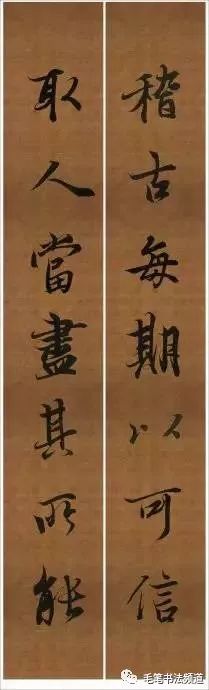 稽古每期以可信
取人當盡其所能
毛笔书法频道